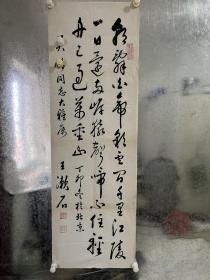 朝辞白帝彩云间千里江陵
一日还两岸猿声啼不住轻
舟已过万重山 丁卯冬于北京
同志大雅属
王漱石